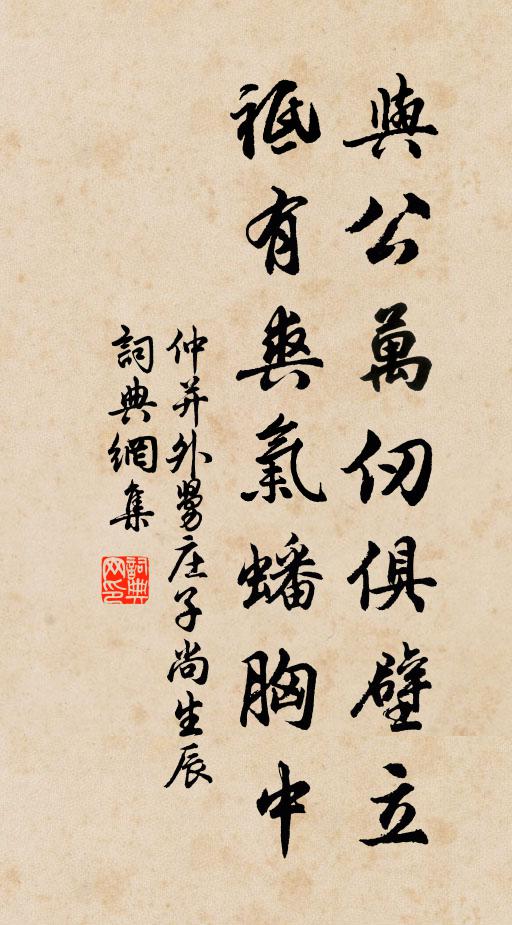 與公萬仞俱壁立
祗有爽氣蟠胸中
仲并外舅庄子尚生辰
詞典網集
詞典網印